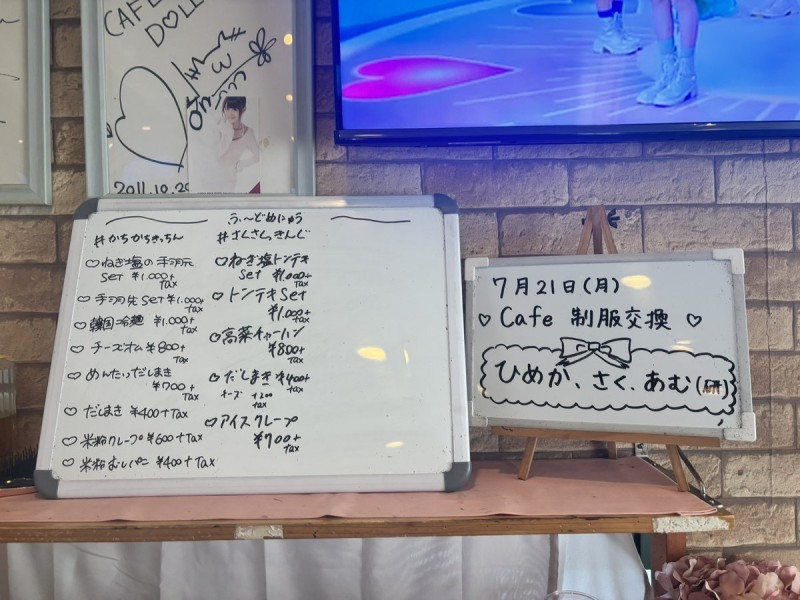 CAFE
DOLL
2011.10.20
ふ〜どめにゅう
#かちかちきっちん
♡ねぎ塩の手羽元
Set ¥1.000+
Tax
♡手羽先Set ¥1.000+
tax
♡韓国冷麺 ¥1.000+
Tax
♡チーズオム ¥800+
Tax
♡めんたいだしまき
¥700+
Tax
♡だしまき ¥400+Tax
♡米粉クレープ ¥600+Tax
♡米粉むしパン ¥400+Tax
#さくさくっきんぐ
♡ねぎ塩トンテキ
Set ¥1,000+
Tax
♡トンテキSet
¥1.000+
Tax
♡高菜チャーハン
¥800+
Tax
♡だしまき ¥400+
チーズ +200
tax
♡アイスクレープ
¥700+
tax
7月21日(月)
♡ Cafe 制服交換 ♡
ひめか、さく、あむ(研)